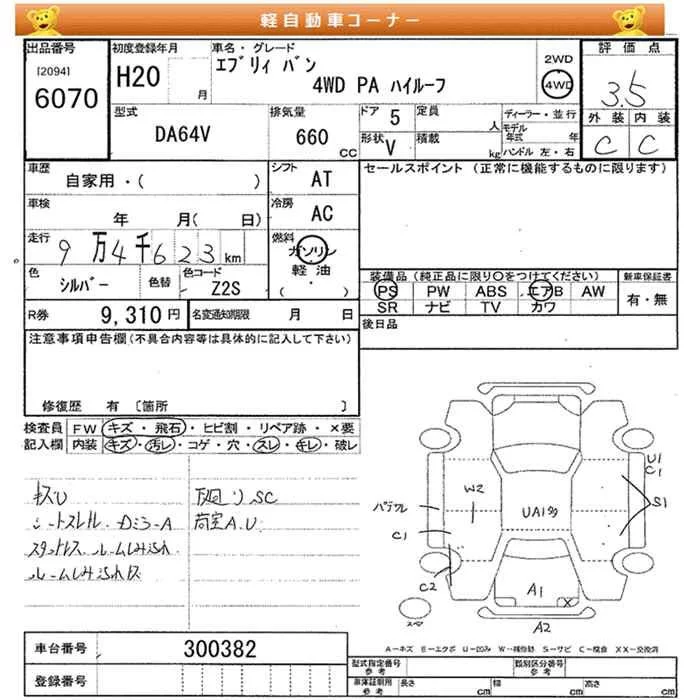 軽自動車コーナー
出品番号
[2094]
6070
初度登録年月
H20
月
車名・グレード
エブリィ バン
4WD PA ハイルーフ
2WD
4WD
評価点
3.5
外装 内装
C C
型式
DA64V
排気量
660 CC
ドア 5
形状 V
定員
人
積載
kg
ディーラー・並行
モデル年式 年
ハンドル 左・右
車歴
自家用・( )
シフト
AT
セールスポイント (正常に機能するものに限ります)
車検
年 月( 日)
冷房
AC
走行
9万4千623km
燃料
ガソリン
軽油
( )
色
シルバー
色替
色コード
Z2S
装備品 (純正品に限り○をつけてください)
新車保証書
PS PW ABS エアB AW
SR ナビ TV カワ
有・無
R券 9,310円
名変通知期限 月 日
後日品
注意事項申告欄(不具合内容等は具体的に記入して下さい)
修復歴 有 [箇所 ]
検査員記入欄
FW キズ・飛石・ヒビ割・リペア跡・×要
内装 キズ・汚レ・コゲ・穴・スレ・キレ・破レ
キズU
シートスレ
スタッドレス
下廻りSC
荷室A.U
W2
UA1
U1
C1
S1
C1
C2
A1
A2
A-キズ E-エクボ U-凹み W-補修跡 S-サビ C-腐食 XX-交換済
車台番号 300382
登録番号
型式指定番号 参考
類別区分番号 参考
車庫証明用 参考
長さ cm
幅 cm
高さ cm